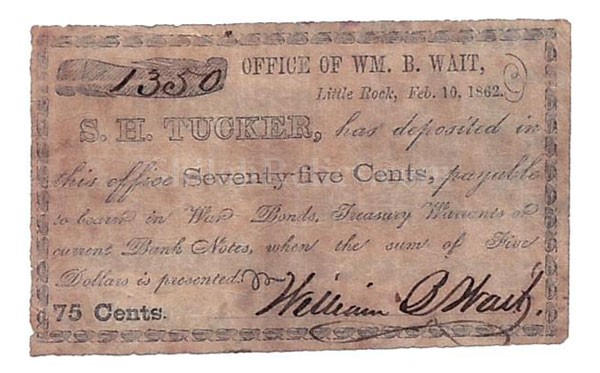 1350
OFFICE OF WM. B. WAIT,
Little Rock, Feb. 10, 1862.
S. H. TUCKER, has deposited in
this office Seventy-five Cents, payable
to bearer in War Bonds, Treasury Warrants or
current Bank Notes, when the sum of Five
Dollars is presented.
75 Cents.
William B Wait.